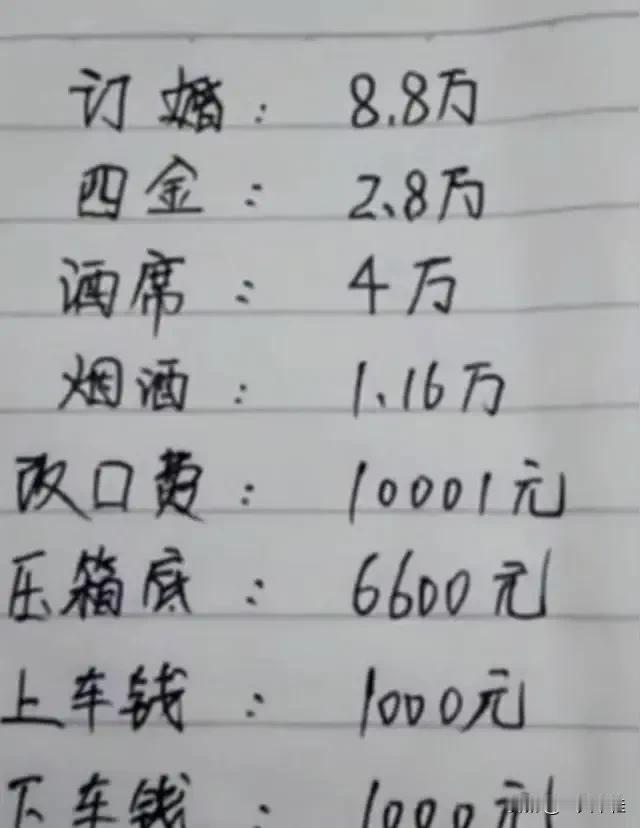 订婚：8.8万
四金：2.8万
酒席：4万
烟酒：1.16万
改口费：10001元
压箱底：6600元
上车钱：1000元
下车钱：1000元